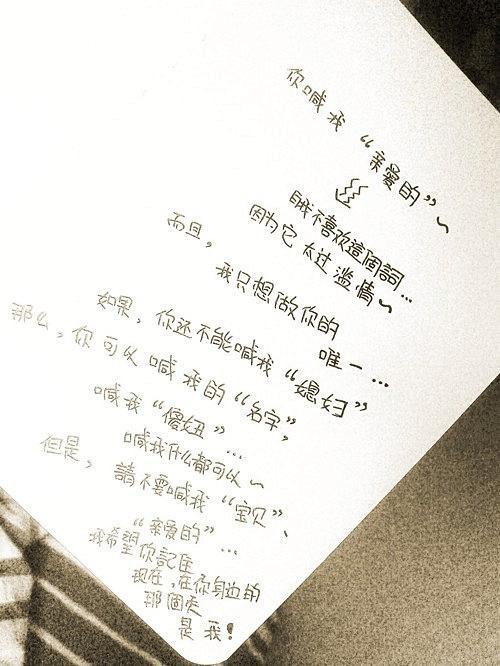 你喊我“亲爱的”～
我不喜欢這個詞…
因为它太过滥情～
而且，
我只想做你的
唯一…
如果，你还不能喊我“媳妇”
那么，你可以喊我的“名字”，
喊我“傻妞”…
喊我什么都可以～
但是，請不要喊我“宝贝”、
“亲爱的”…
我希望你記住
现在，在你身边的
那個
是我！